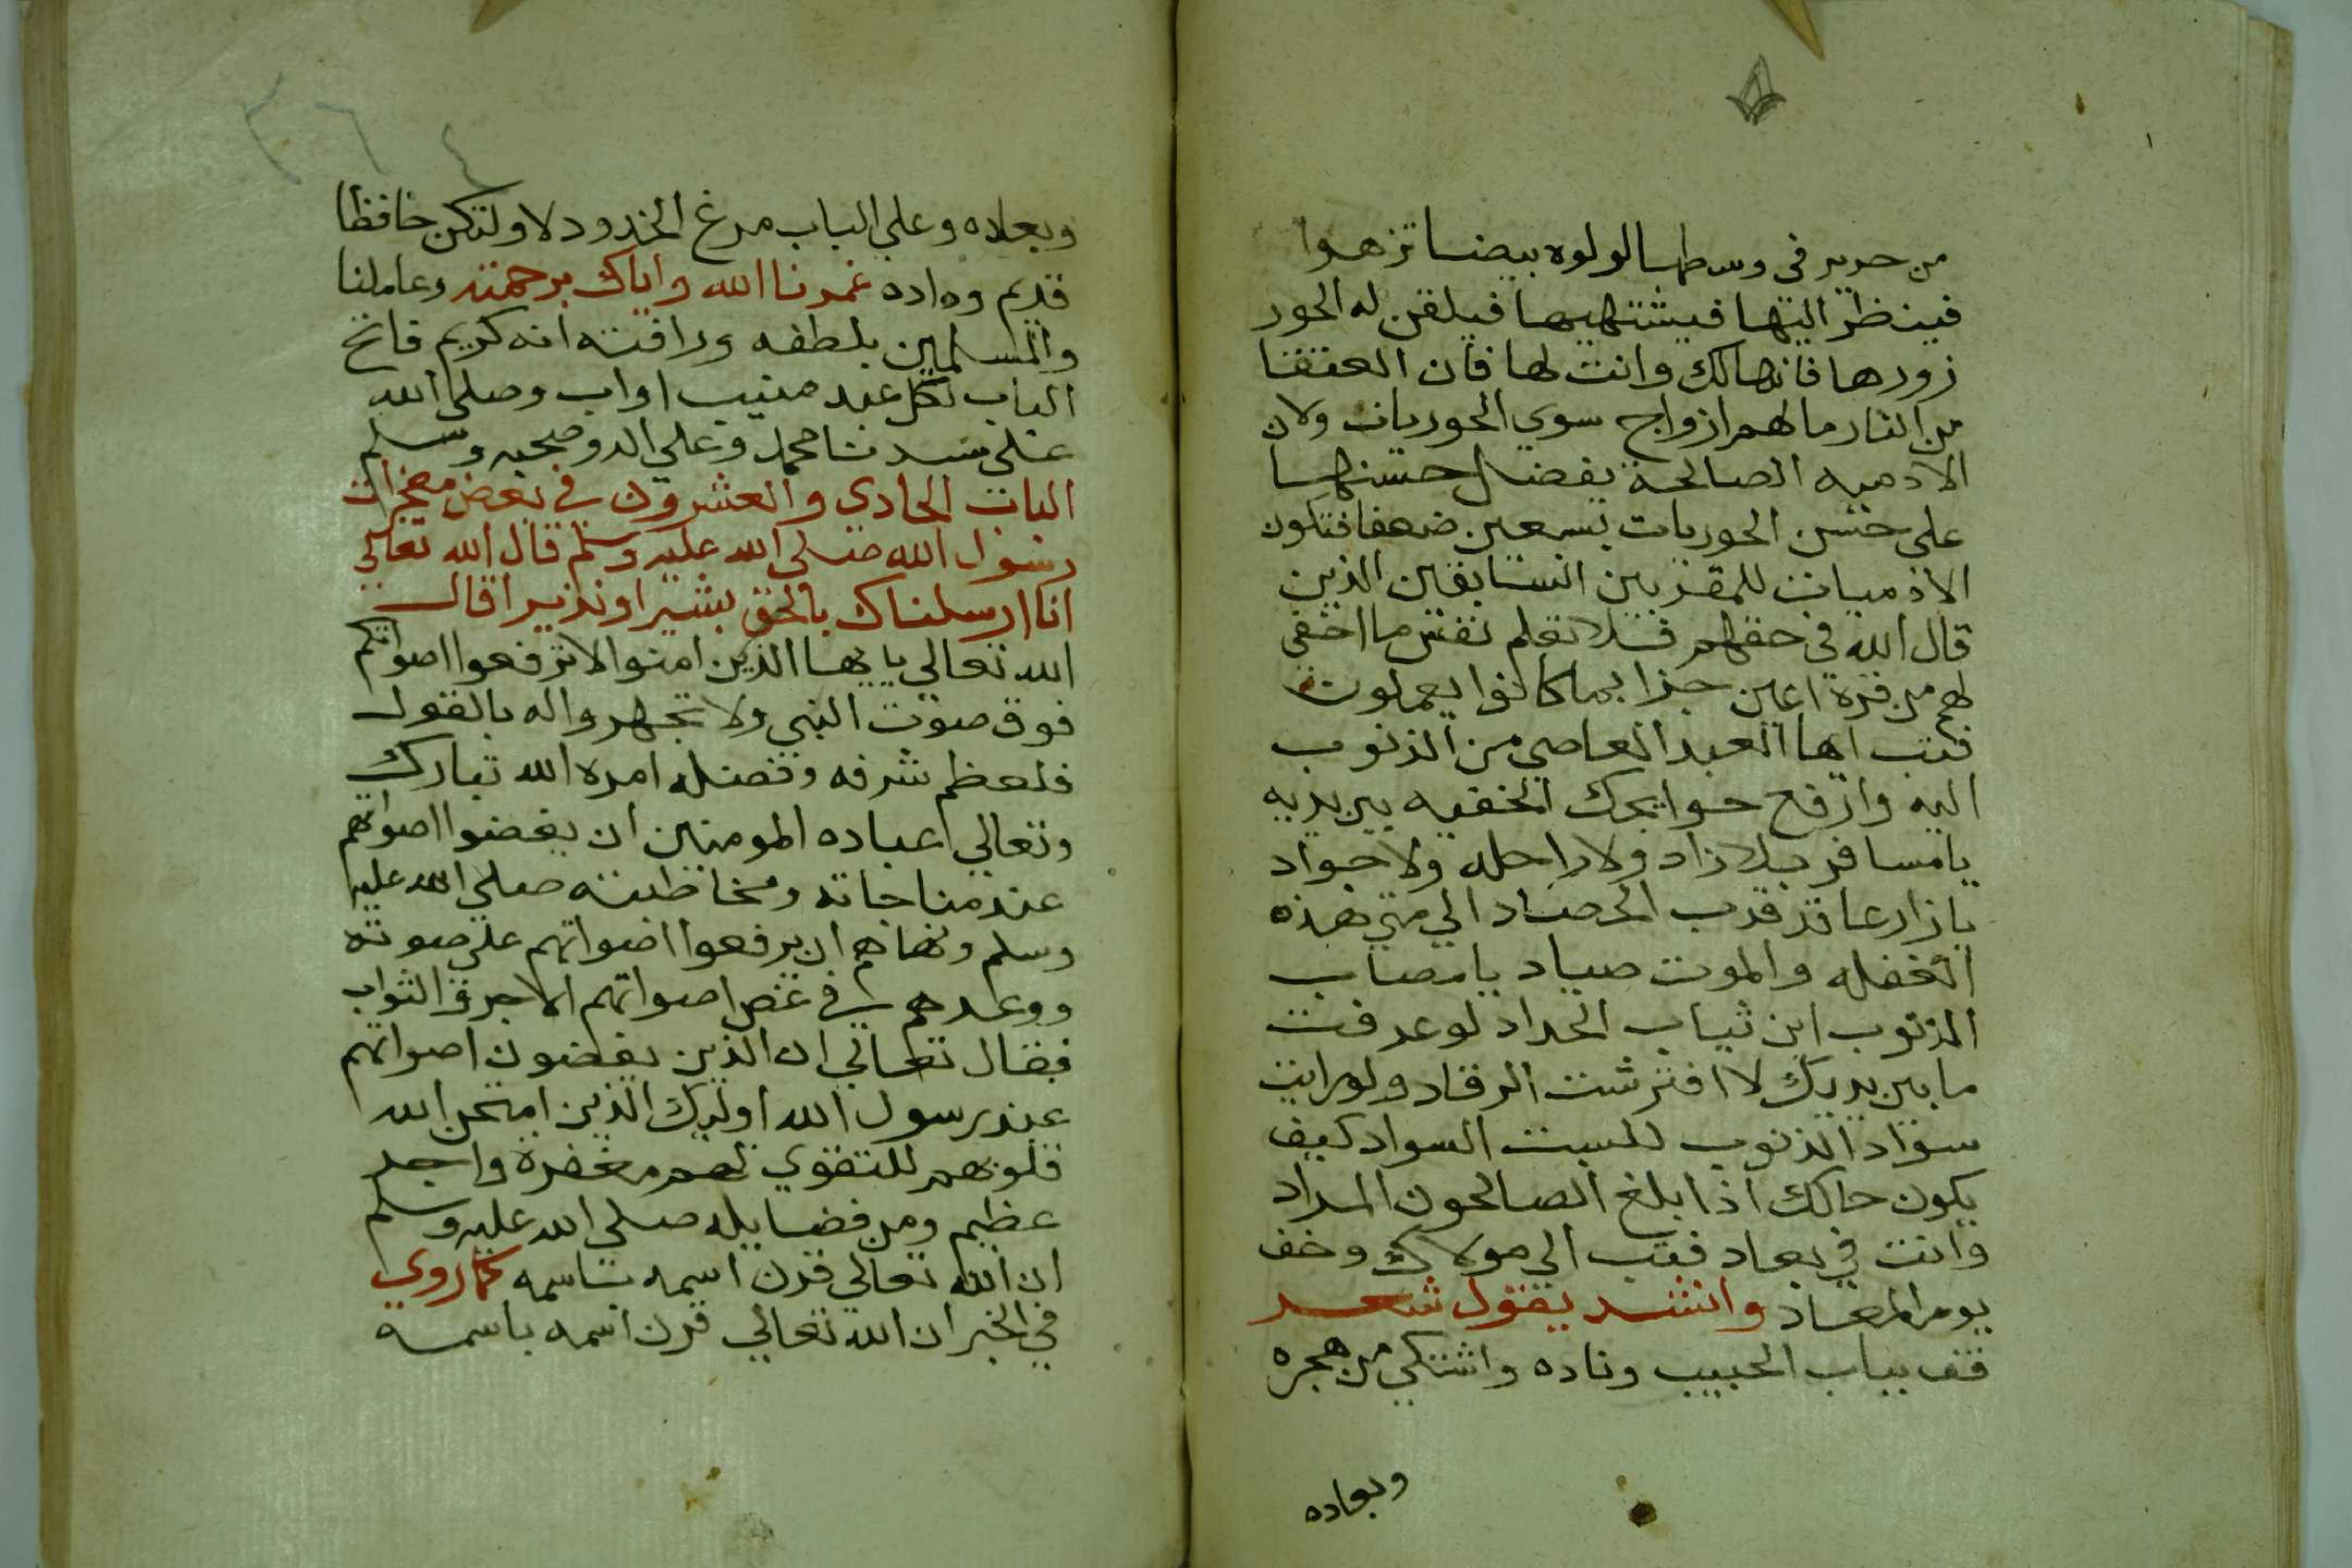 من حرير في وسطها لولوه بيضا تزهوا
فينظر اليها فيشتهيها فيلقن له الحور
زورها فانها لك وانت لها فان العتقا
من النار مالهم ازواج سوي الحوريات ولان
الادميه الصالحة يفضل حسنها
علي حسن الحوريات بسبعين ضعفا فتكون
الادميات للمقربين السابقين الذين
قال الله في حقهم فلا تعلم نفس ما اخفي
لهم من قرة اعين جزا بما كانوا يعملون
فتب ايها العبد العاصي من الذنوب
اليه وارفع حوايجك الخفيه بين يديه
يا مسافر بلا زاد ولا راحله ولا جواد
يا زارعا قد قرب الحصاد الي متي هذه
الغفله والموت صياد يا مصاب
الذنوب اين ثياب الحداد لو عرفت
ما بين يديك لا افترشت الرقاد ولو رايت
سواد الذنوب للبست السواد كيف
يكون حالك اذا بلغ الصالحون المراد
وانت في بعاد فتب الي مولاك وخف
يوم المعاد وانشد يقول شعر
قف بباب الحبيب وناده واشتكي من هجره
وبعاده
وبعاده وعلي الباب مرغ الخدود لا ولتكن حافظا
قديم وداده غمرنا الله واياك برحمته وعاملنا
والمسلمين بلطفه ورافته انه كريم فاتح
الباب لكل عبد منيب اواب وصلي الله
علي سيدنا محمد وعلي اله وصحبه وسلم
الباب الحادي والعشرون في بعض معجزات
رسول الله صلي الله عليه وسلم قال الله تعالي
انا ارسلناك بالحق بشيرا ونذيرا قال
الله تعالي يا يها الذين امنوا لا ترفعوا اصواتكم
فوق صوت النبي ولا تجهروا له بالقول
فلعظم شرفه وفضله امره الله تبارك
وتعالي عباده المومنين ان يغضوا اصواتهم
عند مناجاته ومخاطبته صلي الله عليه
وسلم ونهاهم ان يرفعوا اصواتهم علي صوته
ووعدهم في غض اصواتهم الاجر والثواب
فقال تعالي ان الذين يغضون اصواتهم
عند رسول الله اوليك الذين امتحن الله
قلوبهم للتقوي لهم مغفرة واجر
عظيم ومن فضايله صلي الله عليه وسلم
ان الله تعالي قرن اسمه باسمه كما روي
في الخبر ان الله تعالي قرن اسمه باسمه